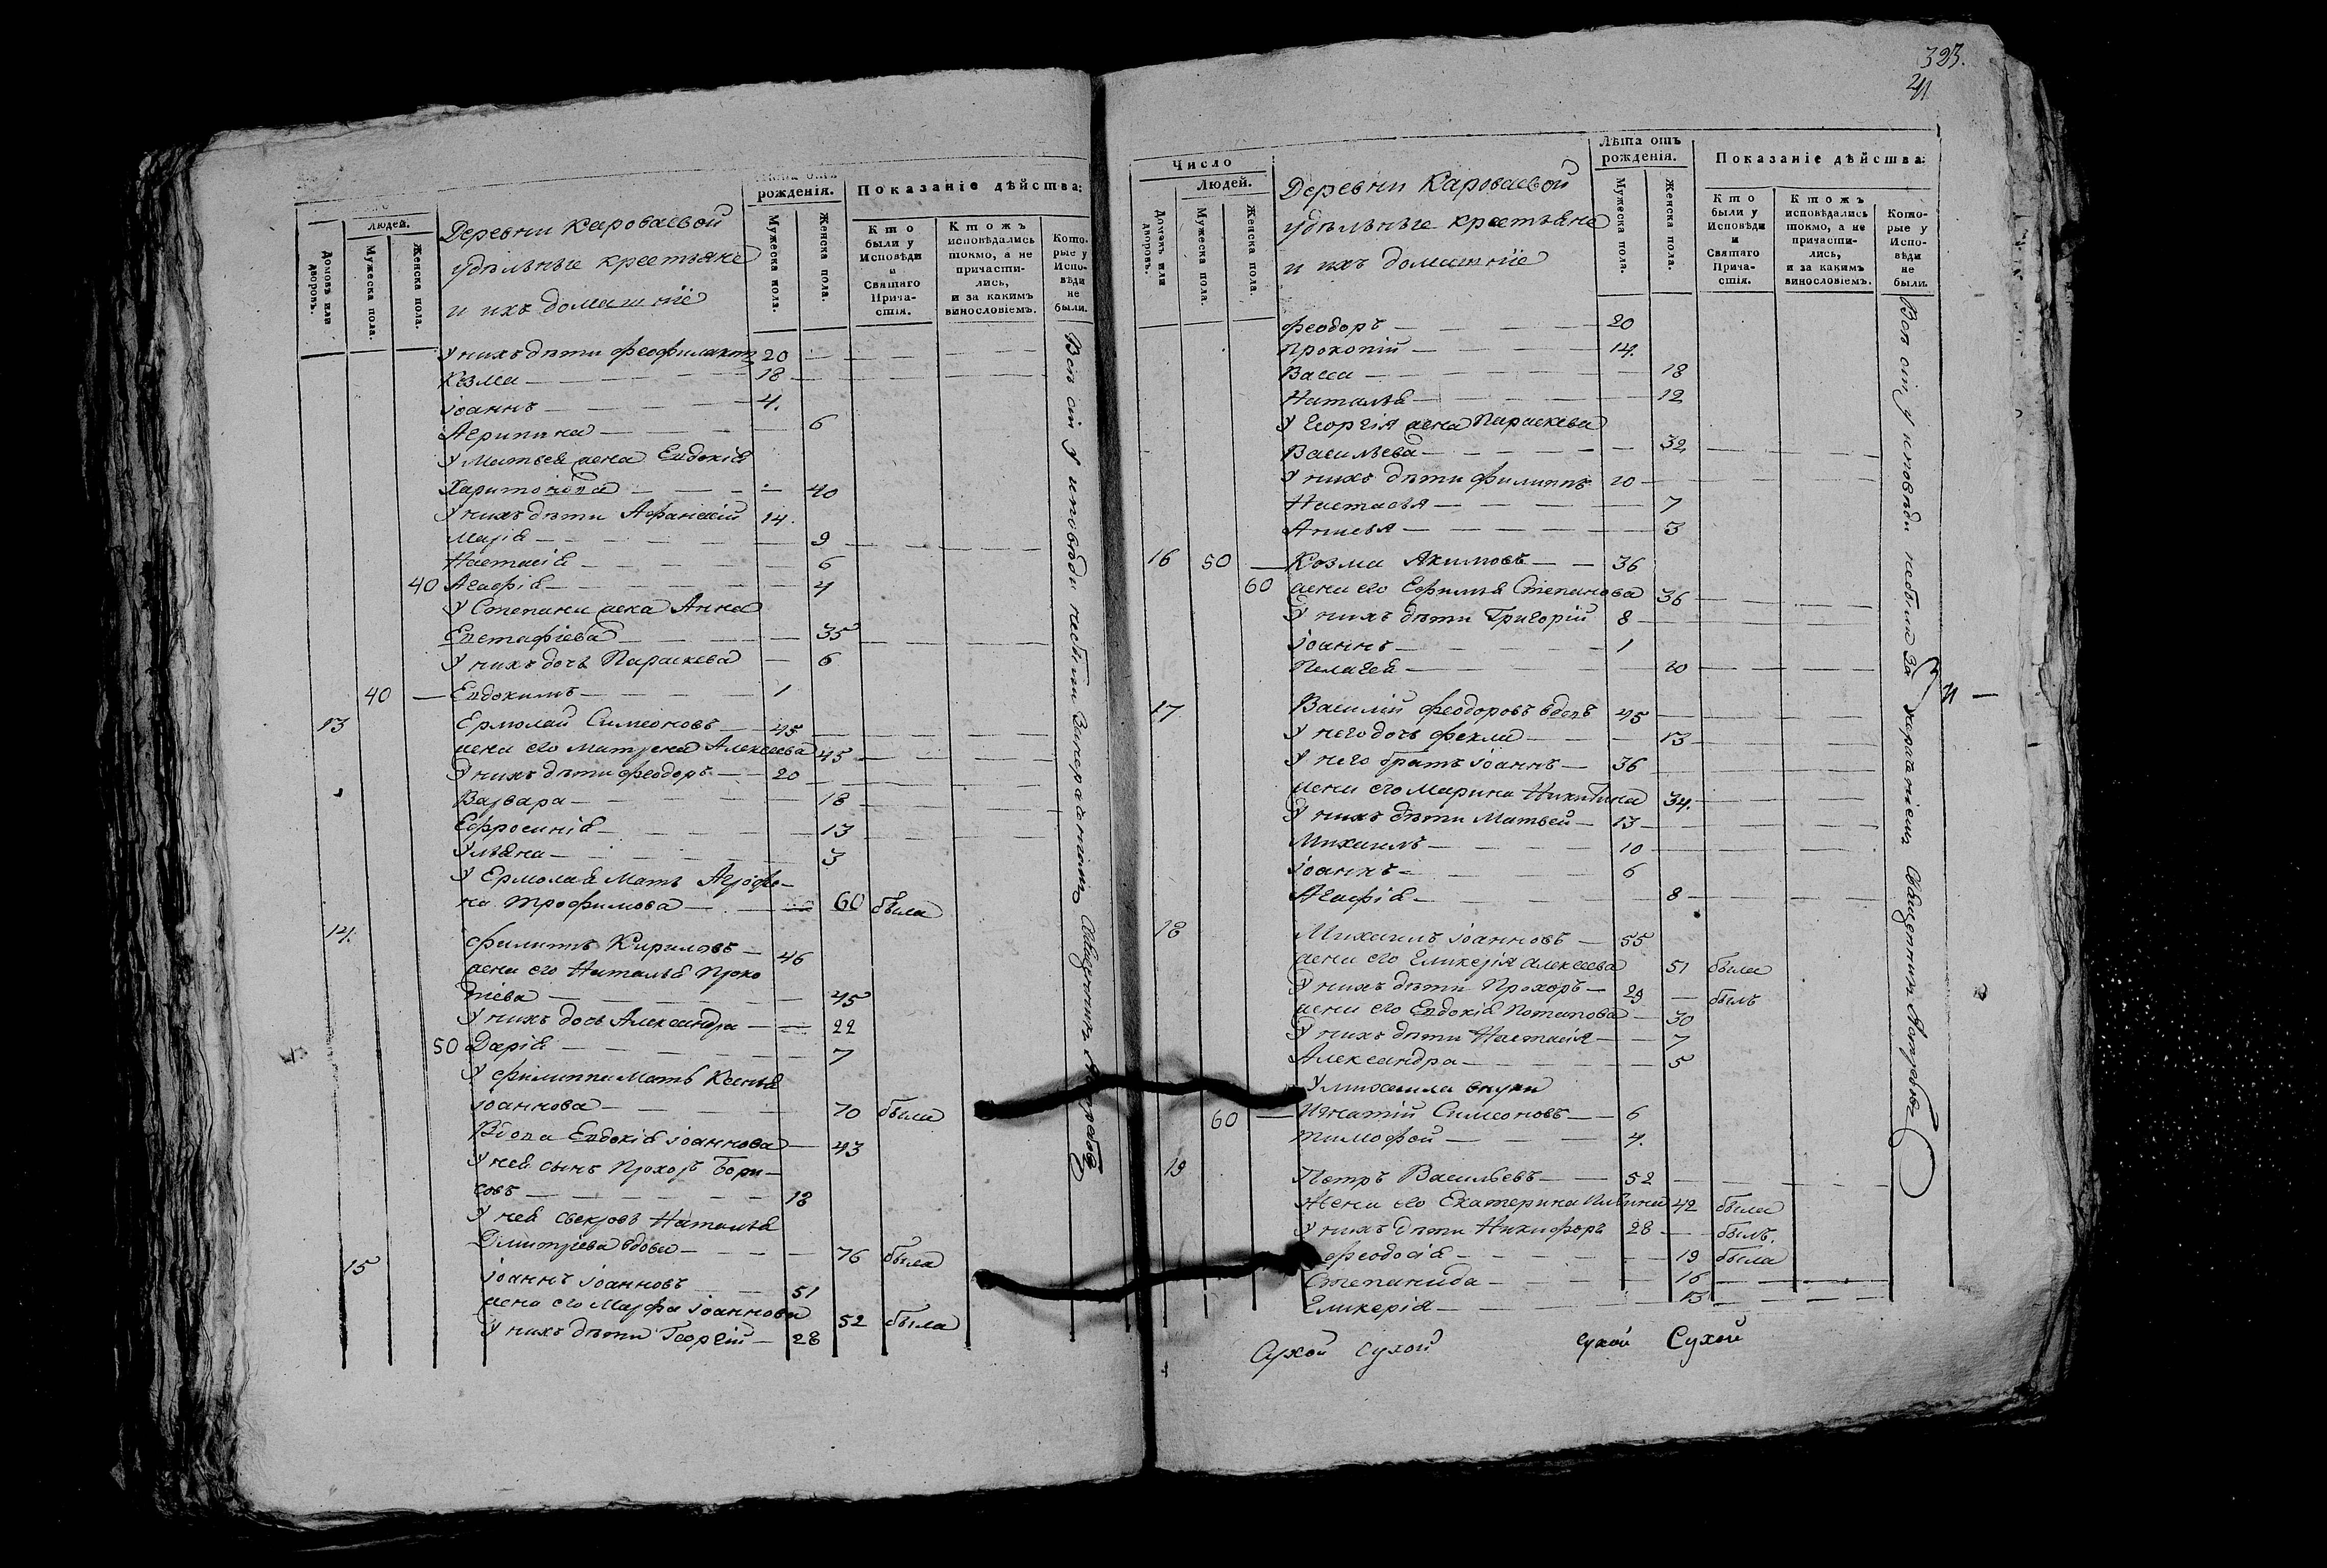 рожденія. Показаніе дѣйства:
Людей.
Домовъ или дворовъ.
Мужеска пола.
Женска пола.
Деревни Короваевой
удѣльные крестьяне
и ихъ домашніе
Мужеска пола.
Женска пола.
Кто были у Исповѣди и Святаго Прича-стія.
Ктожъ исповѣдались токмо, а не причасти-лись, и за какимъ винословіемъ.
Кото-рые у Испо-вѣди не были.
У нихъ дѣти Феофилактъ 20
Козма 18
Іоаннъ 4.
Агрипина 6
У Матвея жена Евдокія
Харитонова 40
У нихъ дѣти Афанасій 14.
Марія 9
Настасія 6
40 Агафія 4
У Степана жена Анна
Евстафіева 35
У нихъ дочь Параскева 6
40 Евдокимъ 1
13 Ермолай Симеоновъ 45
жена его Матрена Алексеева 45
У нихъ дѣти Феодоръ 20
Варвара 18
Ефросинія 13
Ульяна 3
У Ермолая мать Агрофе-
на Трофимова 60 была
14. Филиппъ Кириловъ 46
жена его Наталья Проко
піева 45
У нихъ дочь Александра 22
50 Дарія 7
У Филиппа мать Ксенья
Іоаннова 70 была
Вдова Евдокія Іоаннова 43
У ней сынъ Прохоръ Бори-
совъ 18
У ней свекровь Наталья
Димитріева вдова 76 была
15 Іоаннъ Іоанновъ 51
жена его Марфа Іоаннова 52 была
У нихъ дѣти Георгій 28
Всѣ сіи у исповѣди небыли
323.
Число
Людей.
Домовъ или дворовъ.
Мужеска пола.
Женска пола.
Деревни Короваевой
удѣльные крестьяне
и ихъ домашніе
Лѣта отъ рожденія.
Мужеска пола.
Женска пола.
Показаніе дѣйства:
Кто были у Исповѣди и Святаго Прича-стія.
Ктожъ исповѣдались токмо, а не причасти-лись, и за какимъ винословіемъ.
Кото-рые у Испо-вѣди не были.
Феодоръ 20
Прокопій 14.
Васса 18
Наталья 12
У Георгія жена Параскева
Васильева 32
У нихъ дѣти Филиппъ 10
Настасья 7
Анисья 3
16 50 Козма Акимовъ 36
60 жена его Ефимья Степанова 36
У нихъ дѣти Григорій 8
Іоаннъ 1
Пелагея 10
17 Василій Феодоровъ вдовъ 45
У него дочь Фекла 13
У него братъ Іоаннъ 36
жена его Марина Никитина 34.
У нихъ дѣти Матвей 13
Михаилъ 10
Іоаннъ 6
Агафія 8
18 Михаилъ Іоанновъ 55
жена его Гликерія Алексеева 51 была
У нихъ дѣти Прохоръ 29 былъ
жена его Евдокія Потапова 30
У нихъ дѣти Настасія 7
Александра 5
У Михаила внуки
60 Игнатій Симеоновъ 6
Тимофей 4.
19 Петръ Васильевъ 52
Жена его Екатерина Ильина 42 была
У нихъ дѣти Никифоръ 28 былъ.
Феодосія 19 была
Степанида 16
Гликерія 13
Всѣ сіи у исповѣди небыли за нераченіемъ Священникъ
Сухой Сухой Сухой Сухой